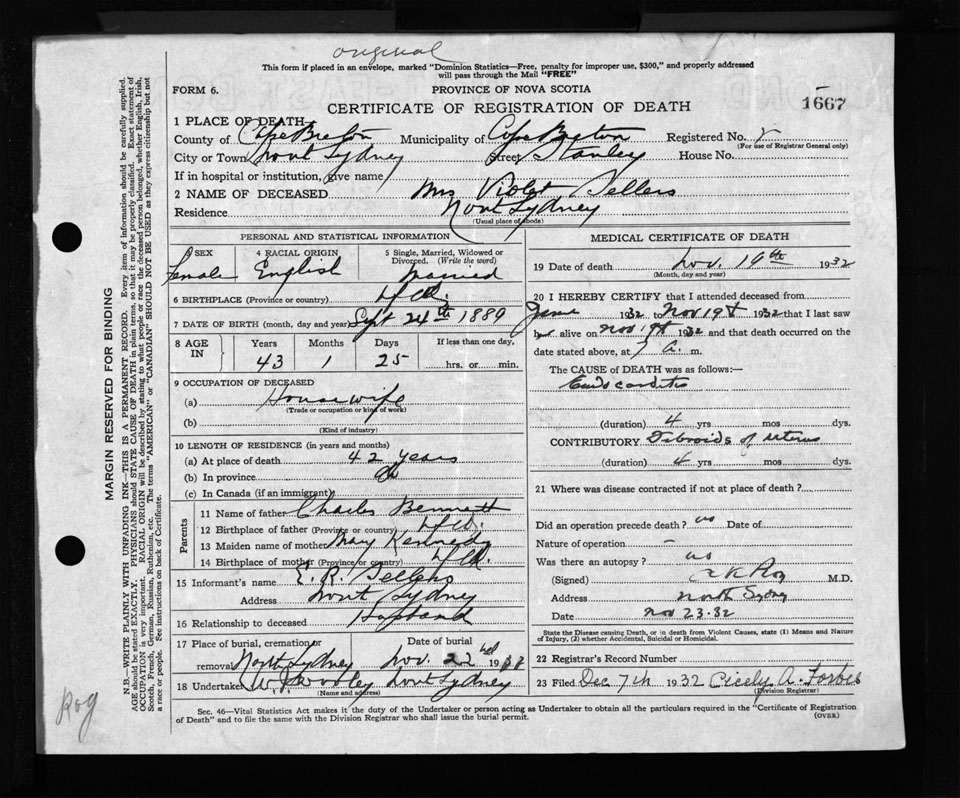 original
This form if placed in an envelope, marked "Dominion Statistics—Free, penalty for improper use, $300," and properly addressed
will pass through the Mail "FREE"
FORM 6.
PROVINCE OF NOVA SCOTIA
CERTIFICATE OF REGISTRATION OF DEATH
1667
1 PLACE OF DEATH
County of Cape Breton Municipality of Cape Breton Registered No.
(For use of Registrar General only)
City or Town North Sydney Street Stanley House No.
If in hospital or institution, give name
2 NAME OF DECEASED Mrs Violet Sellers
Residence North Sydney
(Usual place of abode)
PERSONAL AND STATISTICAL INFORMATION
3 SEX Female
4 RACIAL ORIGIN English
5 Single, Married, Widowed or Divorced. (Write the word) Married
6 BIRTHPLACE (Province or country) Nfld.
7 DATE OF BIRTH (month, day and year) Sept 24th 1889
8 AGE IN
Years Months Days If less than one day,
43 1 25 hrs. or min.
9 OCCUPATION OF DECEASED
(a) Housewife
(Trade or occupation or kind of work)
(b)
(Kind of industry)
10 LENGTH OF RESIDENCE (in years and months)
(a) At place of death 42 years
(b) In province do
(c) In Canada (if an immigrant)
Parents
11 Name of father Charles Bennett
12 Birthplace of father (Province or country) Nfld.
13 Maiden name of mother Mary Kennedy
14 Birthplace of mother (Province or country) Nfld.
15 Informant's name E. R. Sellers
Address North Sydney
16 Relationship to deceased Husband
17 Place of burial, cremation or removal North Sydney
Date of burial Nov. 22nd 19
18 Undertaker North Sydney
(Name and address)
MEDICAL CERTIFICATE OF DEATH
19 Date of death Nov. 19th 1932
(Month, day and year)
20 I HEREBY CERTIFY that I attended deceased from
June 1932 to Nov 19th 1932 that I last saw
her alive on Nov 19th 1932 and that death occurred on the
date stated above, at 7 a. m.
The CAUSE of DEATH was as follows:—
Endocarditis
(duration) 4 yrs mos dys.
CONTRIBUTORY Fibroids of uterus
(duration) 4 yrs mos dys.
21 Where was disease contracted if not at place of death?
Did an operation precede death? no Date of
Nature of operation —
Was there an autopsy? no
(Signed) M.D.
Address North Sydney
Date Nov 23.32
State the Disease causing Death, or in death from Violent Causes, state (1) Means and Nature
of Injury, (2) whether Accidental, Suicidal or Homicidal.
22 Registrar's Record Number
23 Filed Dec 7th 1932 Cicely A. Forbes
(Division Registrar)
Sec. 46—Vital Statistics Act makes it the duty of the Undertaker or person acting as Undertaker to obtain all the particulars required in the "Certificate of Registration
of Death" and to file the same with the Division Registrar who shall issue the burial permit.
(OVER)
MARGIN RESERVED FOR BINDING
N.B.—WRITE PLAINLY WITH UNFADING INK—THIS IS A PERMANENT RECORD. Every item of information should be carefully supplied.
AGE should be stated EXACTLY. PHYSICIANS should STATE CAUSE OF DEATH in plain terms, so that it may be properly classified. Exact statement of
OCCUPATION is very important. RACIAL ORIGIN will be described by stating to what people or race the deceased person belonged, whether English, Irish,
Scotch, French, German, Russian, Ruthenian, etc. The terms "AMERICAN" or "CANADIAN" SHOULD NOT BE USED as they express citizenship but not
a race or people. See instructions on back of Certificate.